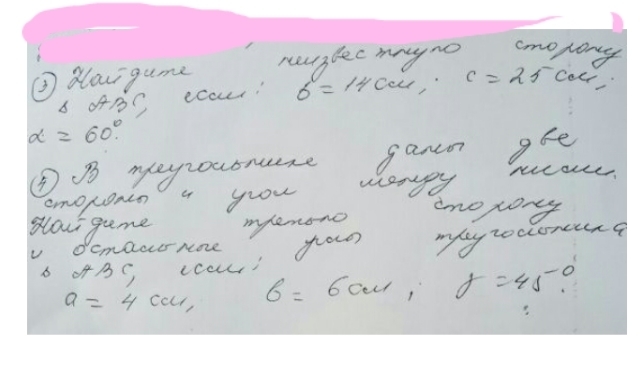 ③ Найдите неизвестную сторону
Δ ABC, если: b = 14 см, c = 25 см;
α = 60°.
④ В треугольнике даны две
стороны и угол между ними.
Найдите третью сторону
и остальные углы треугольника
Δ ABC, если:
a = 4 см, b = 6 см; γ = 45°.